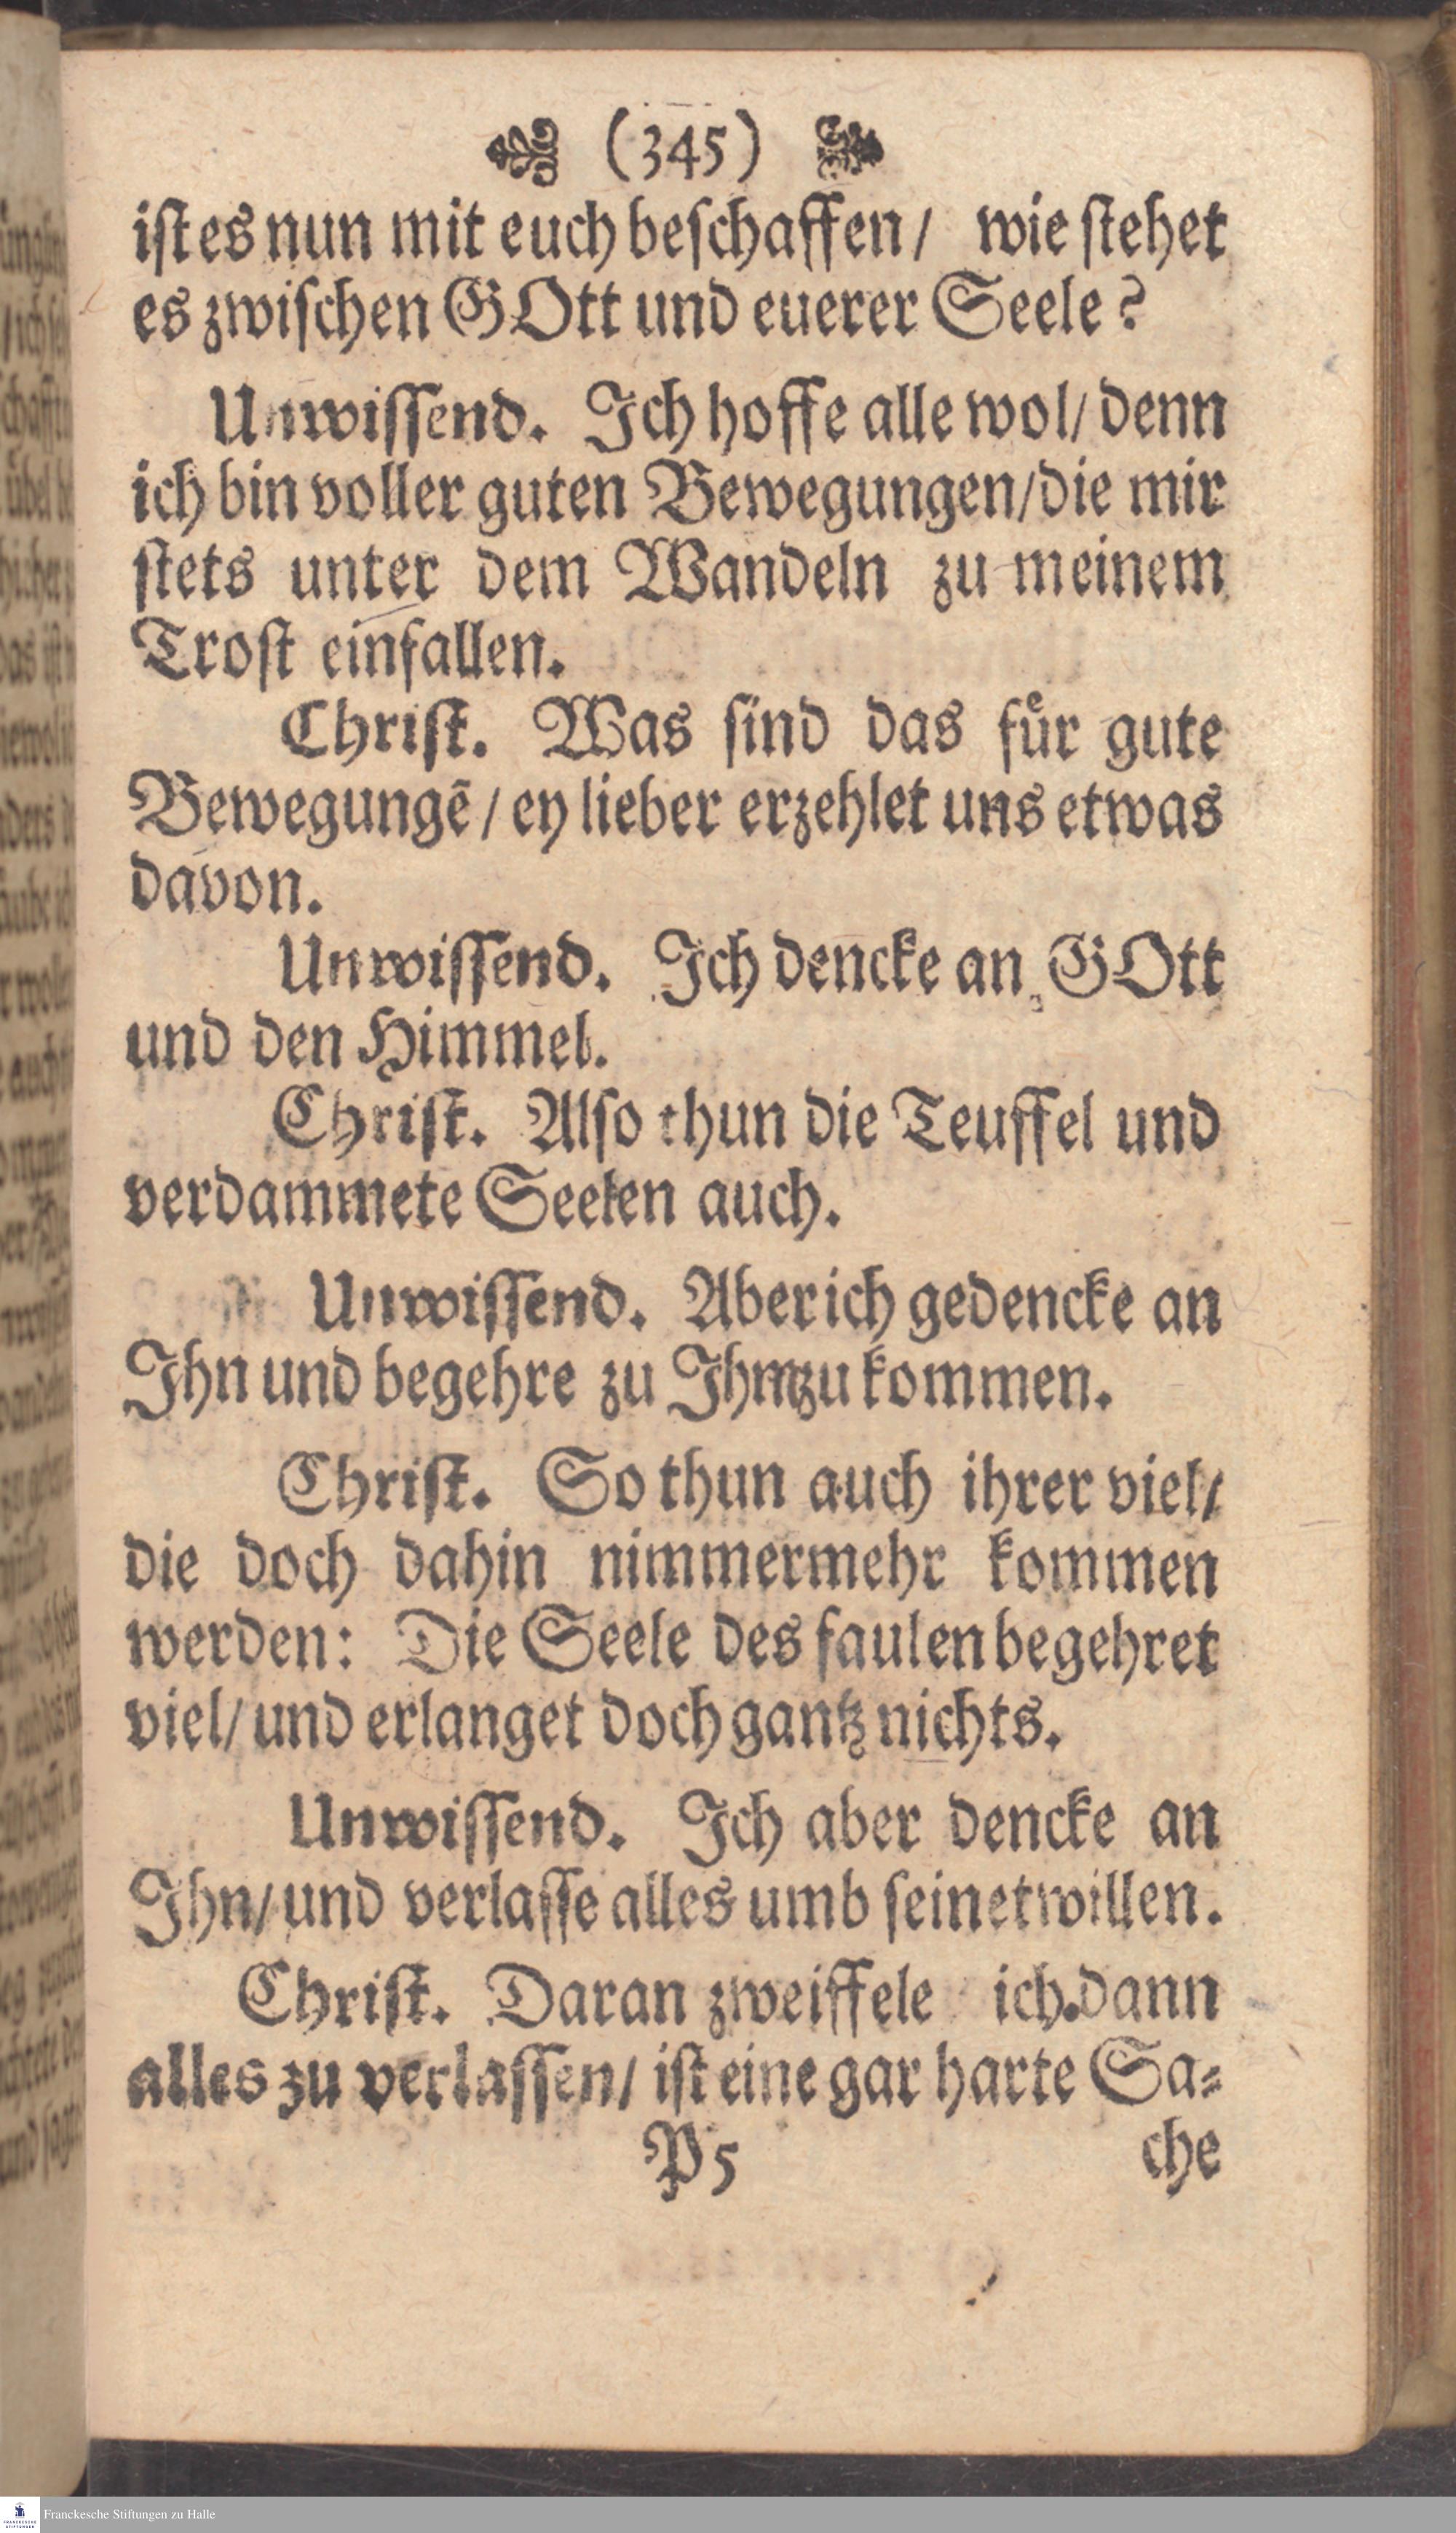 (345)
ist es nun mit euch beschaffen / wie stehet
es zwischen GOtt und euerer Seele?
Unwissend. Ich hoffe alle wol / denn
ich bin voller guten Bewegungen / die mir
stets unter dem Wandeln zu meinem
Trost einfallen.
Christ. Was sind das fuͤr gute
Bewegungē / ey lieber erzehlet uns etwas
davon.
Unwissend. Ich dencke an GOtt
und den Himmel.
Christ. Also thun die Teuffel und
verdammete Seelen auch.
Unwissend. Aber ich gedencke an
Ihn und begehre zu Ihm zu kommen.
Christ. So thun auch ihrer viel /
die doch dahin nimmermehr kommen
werden: Die Seele des faulen begehret
viel / und erlanget doch gantz nichts.
Unwissend. Ich aber dencke an
Ihn / und verlasse alles umb seinetwillen.
Christ. Daran zweiffele ich. dann
alles zu verlassen / ist eine gar harte Sa⸗
P 5 che
Franckesche Stiftungen zu Halle